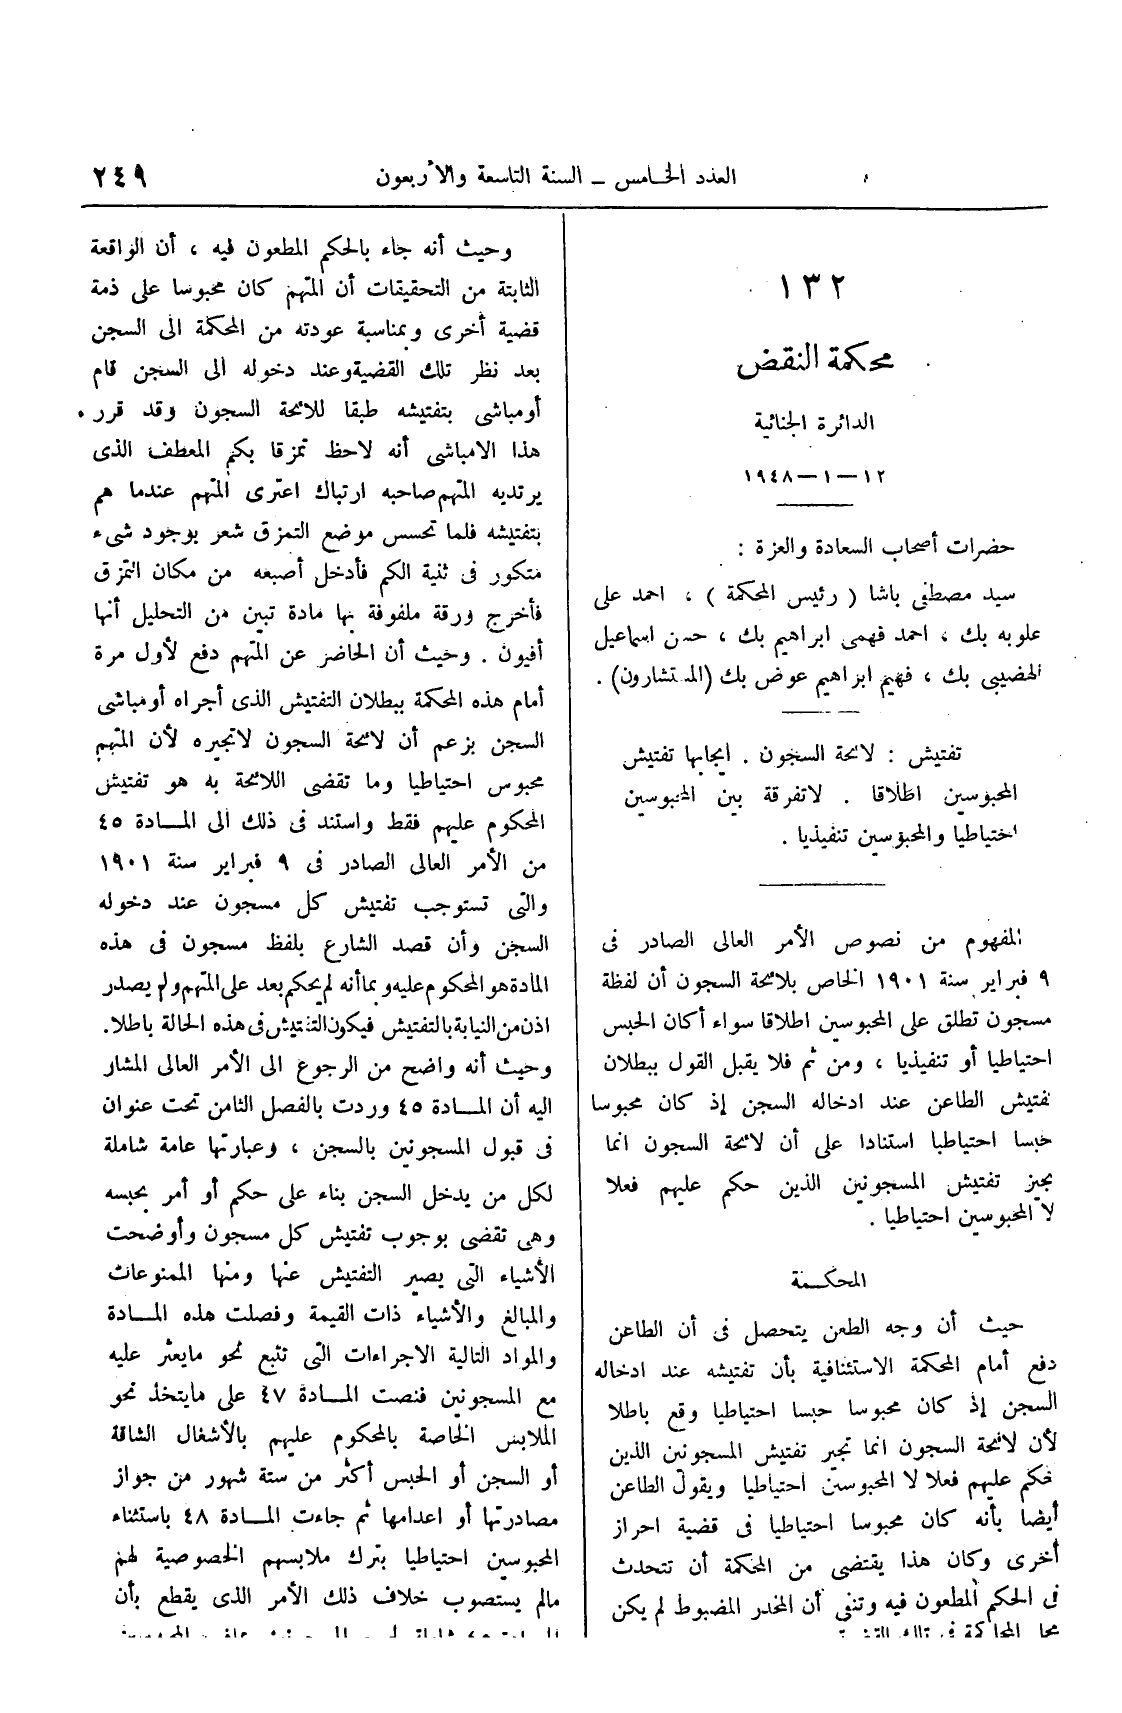 العدد الخامس ــ السنة التاسعة والأربعون
٢٤٩
١٣٢
محكمة النقض
الدائرة الجنائية
١٢ — ١ — ١٩٤٨
حضرات أصحاب السعادة والعزة :
سيد مصطفى باشا ( رئيس المحكمة ) ، احمد على
علوبه بك ، احمد فهمى ابراهيم بك ، حسن اسماعيل
الهضيبى بك ، فهيم ابراهيم عوض بك (المستشارون) .
تفتيش : لائحة السجون . ايجابها تفتيش
المحبوسين اطلاقا . لاتفرقة بين المحبوسين
احتياطيا والمحبوسين تنفيذيا .
المفهوم من نصوص الأمر العالى الصادر فى
٩ فبراير سنة ١٩٠١ الخاص بلائحة السجون أن لفظة
مسجون تطلق على المحبوسين اطلاقا سواء أكان الحبس
احتياطيا أو تنفيذيا ، ومن ثم فلا يقبل القول ببطلان
تفتيش الطاعن عند ادخاله السجن إذ كان محبوسا
حبسا احتياطيا استنادا على أن لائحة السجون انما
يجيز تفتيش المسجونين الذين حكم عليهم فعلا
لا المحبوسين احتياطيا .
المحكمة
حيث أن وجه الطعن يتحصل فى أن الطاعن
دفع أمام المحكمة الاستئنافية بأن تفتيشه عند ادخاله
السجن إذ كان محبوسا حبسا احتياطيا وقع باطلا
لأن لائحة السجون انما تجيز تفتيش المسجونين الذين
حكم عليهم فعلا لا المحبوسين احتياطيا ويقول الطاعن
أيضا بأنه كان محبوسا احتياطيا فى قضية احراز
أخرى وكان هذا يقتضى من المحكمة أن تتحدث
فى الحكم المطعون فيه وتنفى أن المخدر المضبوط لم يكن
محل المحاكمة فى تلك القضية
وحيث أنه جاء بالحكم المطعون فيه ، أن الواقعة
الثابتة من التحقيقات أن المتهم كان محبوسا على ذمة
قضية أخرى وبمناسبة عودته من المحكمة الى السجن
بعد نظر تلك القضية وعند دخوله الى السجن قام
أومباشى بتفتيشه طبقا للائحة السجون وقد قرر
هذا الامباشى أنه لاحظ تمزقا بكم المعطف الذى
يرتديه المتهم صاحبه ارتباك اعترى المتهم عندما هم
بتفتيشه فلما تحسس موضع التمزق شعر بوجود شىء
متكور فى ثنية الكم فأدخل أصبعه من مكان التمزق
فأخرج ورقة ملفوفة بها مادة تبين من التحليل أنها
أفيون . وحيث أن الحاضر عن المتهم دفع لأول مرة
أمام هذه المحكمة ببطلان التفتيش الذى أجراه أومباشى
السجن بزعم أن لائحة السجون لاتجيزه لأن المتهم
محبوس احتياطيا وما تقضى اللائحة به هو تفتيش
المحكوم عليهم فقط واستند فى ذلك الى المــادة ٤٥
من الأمر العالى الصادر فى ٩ فبراير سنة ١٩٠١
والتى تستوجب تفتيش كل مسجون عند دخوله
السجن وأن قصد الشارع بلفظ مسجون فى هذه
المادة هو المحكوم عليه وبما أنه لم يحكم بعد على المتهم ولم يصدر
اذن من النيابة بالتفتيش فيكون التفتيش فى هذه الحالة باطلا.
وحيث أنه واضح من الرجوع الى الأمر العالى المشار
اليه أن المــادة ٤٥ وردت بالفصل الثامن تحت عنوان
فى قبول المسجونين بالسجن ، وعبارتها عامة شاملة
لكل من يدخل السجن بناء على حكم أو أمر بحبسه
وهى تقضى بوجوب تفتيش كل مسجون وأوضحت
الأشياء التى يصير التفتيش عنها ومنها الممنوعات
والمبالغ والأشياء ذات القيمة وفصلت هذه المــادة
والمواد التالية الاجراءات التى تتبع نحو مايعثر عليه
مع المسجونين فنصت المــادة ٤٧ على مايتخذ نحو
الملابس الخاصة بالمحكوم عليهم بالأشغال الشاقة
أو السجن أو الحبس أكثر من ستة شهور من جواز
مصادرتها أو اعدامها ثم جاءت المــادة ٤٨ باستثناء
المحبوسين احتياطيا بترك ملابسهم الخصوصية لهم
مالم يستصوب خلاف ذلك الأمر الذى يقطع بأن